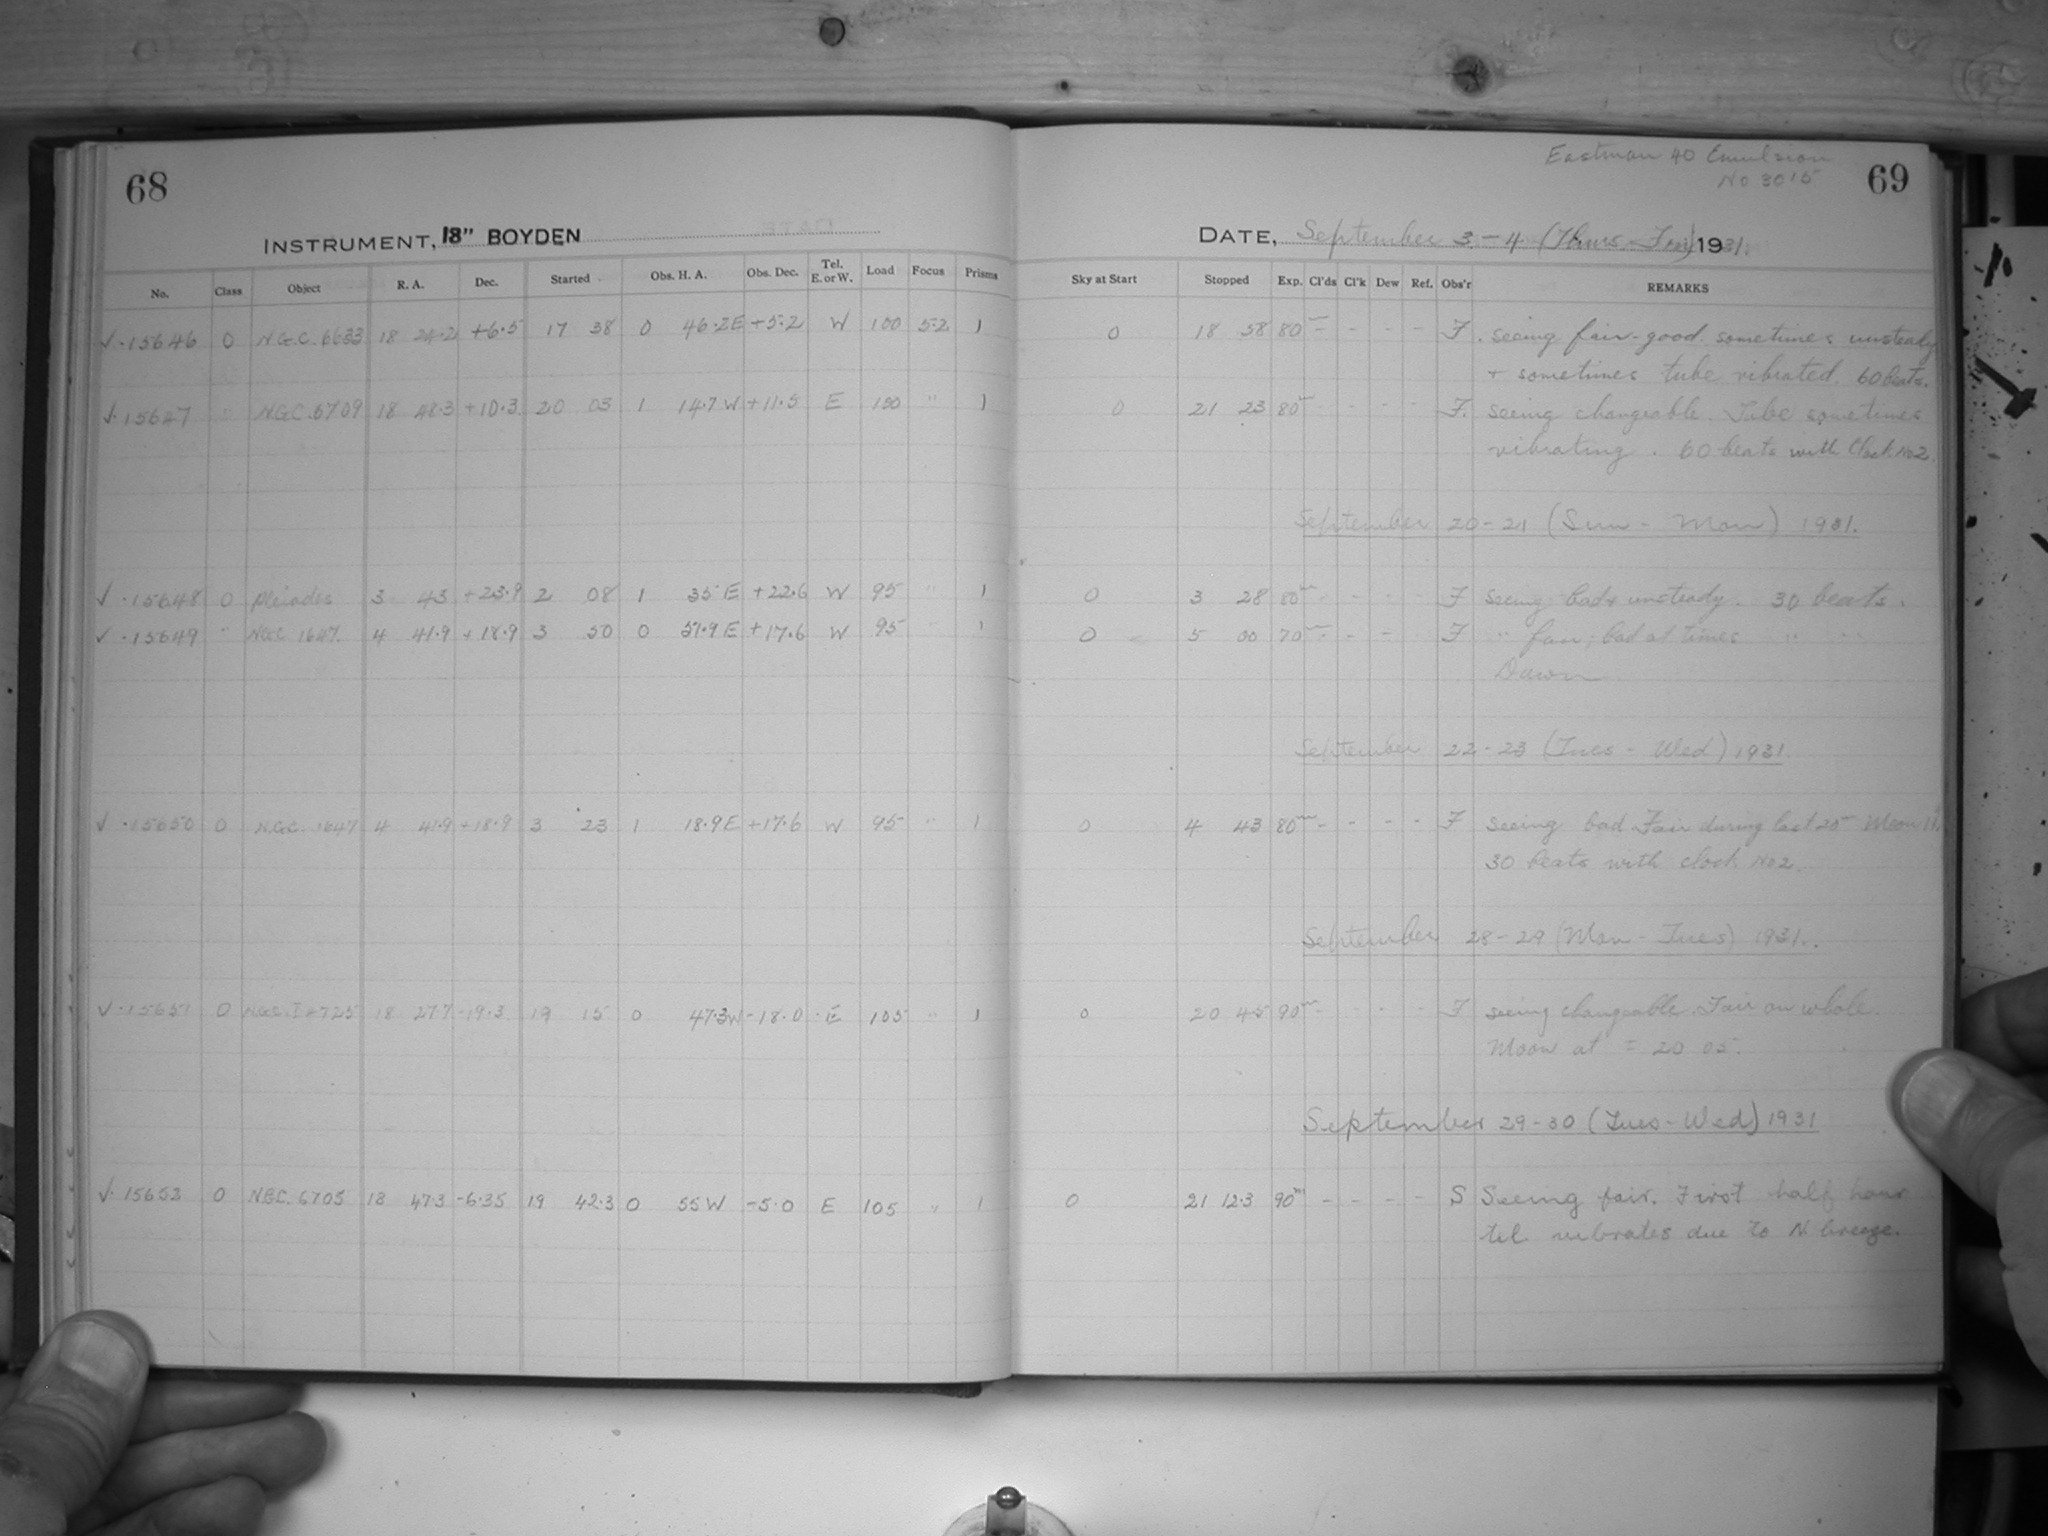 68
INSTRUMENT, 13" BOYDEN
No. Class Object R. A. Dec. Started Obs. H. A. Obs. Dec. Tel. E. or W. Load Focus Prisms
√ .15646 0 N.G.C. 6633 18 24.2 +6.5 17 38 0 46.2E +5.2 W 100 5.2 1
√ .15647 " N.G.C. 6709 18 48.3 +10.3 20 03 1 14.7 W +11.5 E 100 " 1
√ .15648 0 Pleiades 3 43 +23.9 2 08 1 35 E +22.6 W 95 " 1
√ .15649 " NGC 1647. 4 41.9 +18.9 3 50 0 51.9 E +17.6 W 95 " 1
√ .15650 0 N.G.C. 1647 4 41.9 +18.9 3 23 1 18.9E +17.6 W 95 " 1
√ .15651 0 N.G.C. I 4725 18 27.7 -19.3 19 15 0 47.3W -18.0 E 105 " 1
√. 15652 0 N.G.C. 6705 18 47.3 -6.35 19 42.3 0 55 W -5.0 E 105 " 1
Eastman 40 Emulsion
No 3015
69
DATE, September 3-4 (Thurs-Fri) 1931.
Sky at Start Stopped Exp. Cl'ds Cl'k Dew Ref. Obs'r REMARKS
0 18 58 80m - - - - F. seeing fair-good. sometimes unsteady
+ sometimes tube vibrated. 60 beats.
0 21 23 80m - - - - F. seeing changeable. Tube sometimes
vibrating. 60 beats with Clock No2
September 20-21 (Sun - Mon) 1931.
0 3 28 80m - - - - F seeing bad + unsteady. 30 beats.
0 5 00 70m - - - F " fair; bad at times " "
Dawn
September 22-23 (Tues - Wed) 1931.
0 4 43 80m - - - - F seeing bad Fair during last 20m Moon
30 beats with clock No2.
September 28-29 (Mon - Tues) 1931.
0 20 45 90m - - - - F seeing changeable. Fair on whole.
Moon at = 20 05.
September 29-30 (Tues-Wed) 1931
0 21 12.3 90m - - - - S Seeing fair. First half hour
tel vibrates due to N breeze.